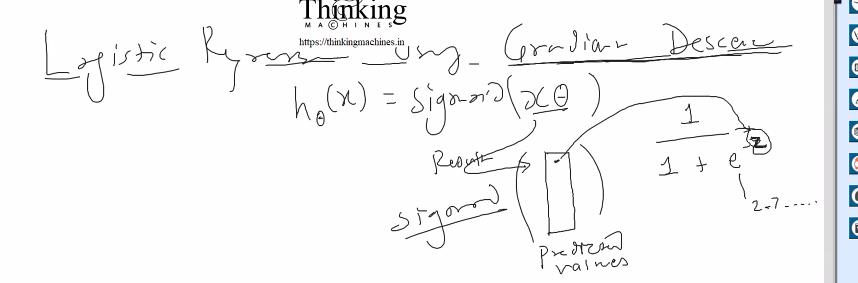 Thinking
MACHINES
https://thinkingmachines.in
Logistic Regression using Gradian Descen
hθ(x) = sigmoid(xθ)
Result
sigmoid
Predicted
values
1
1 + e^-z
2.7.....